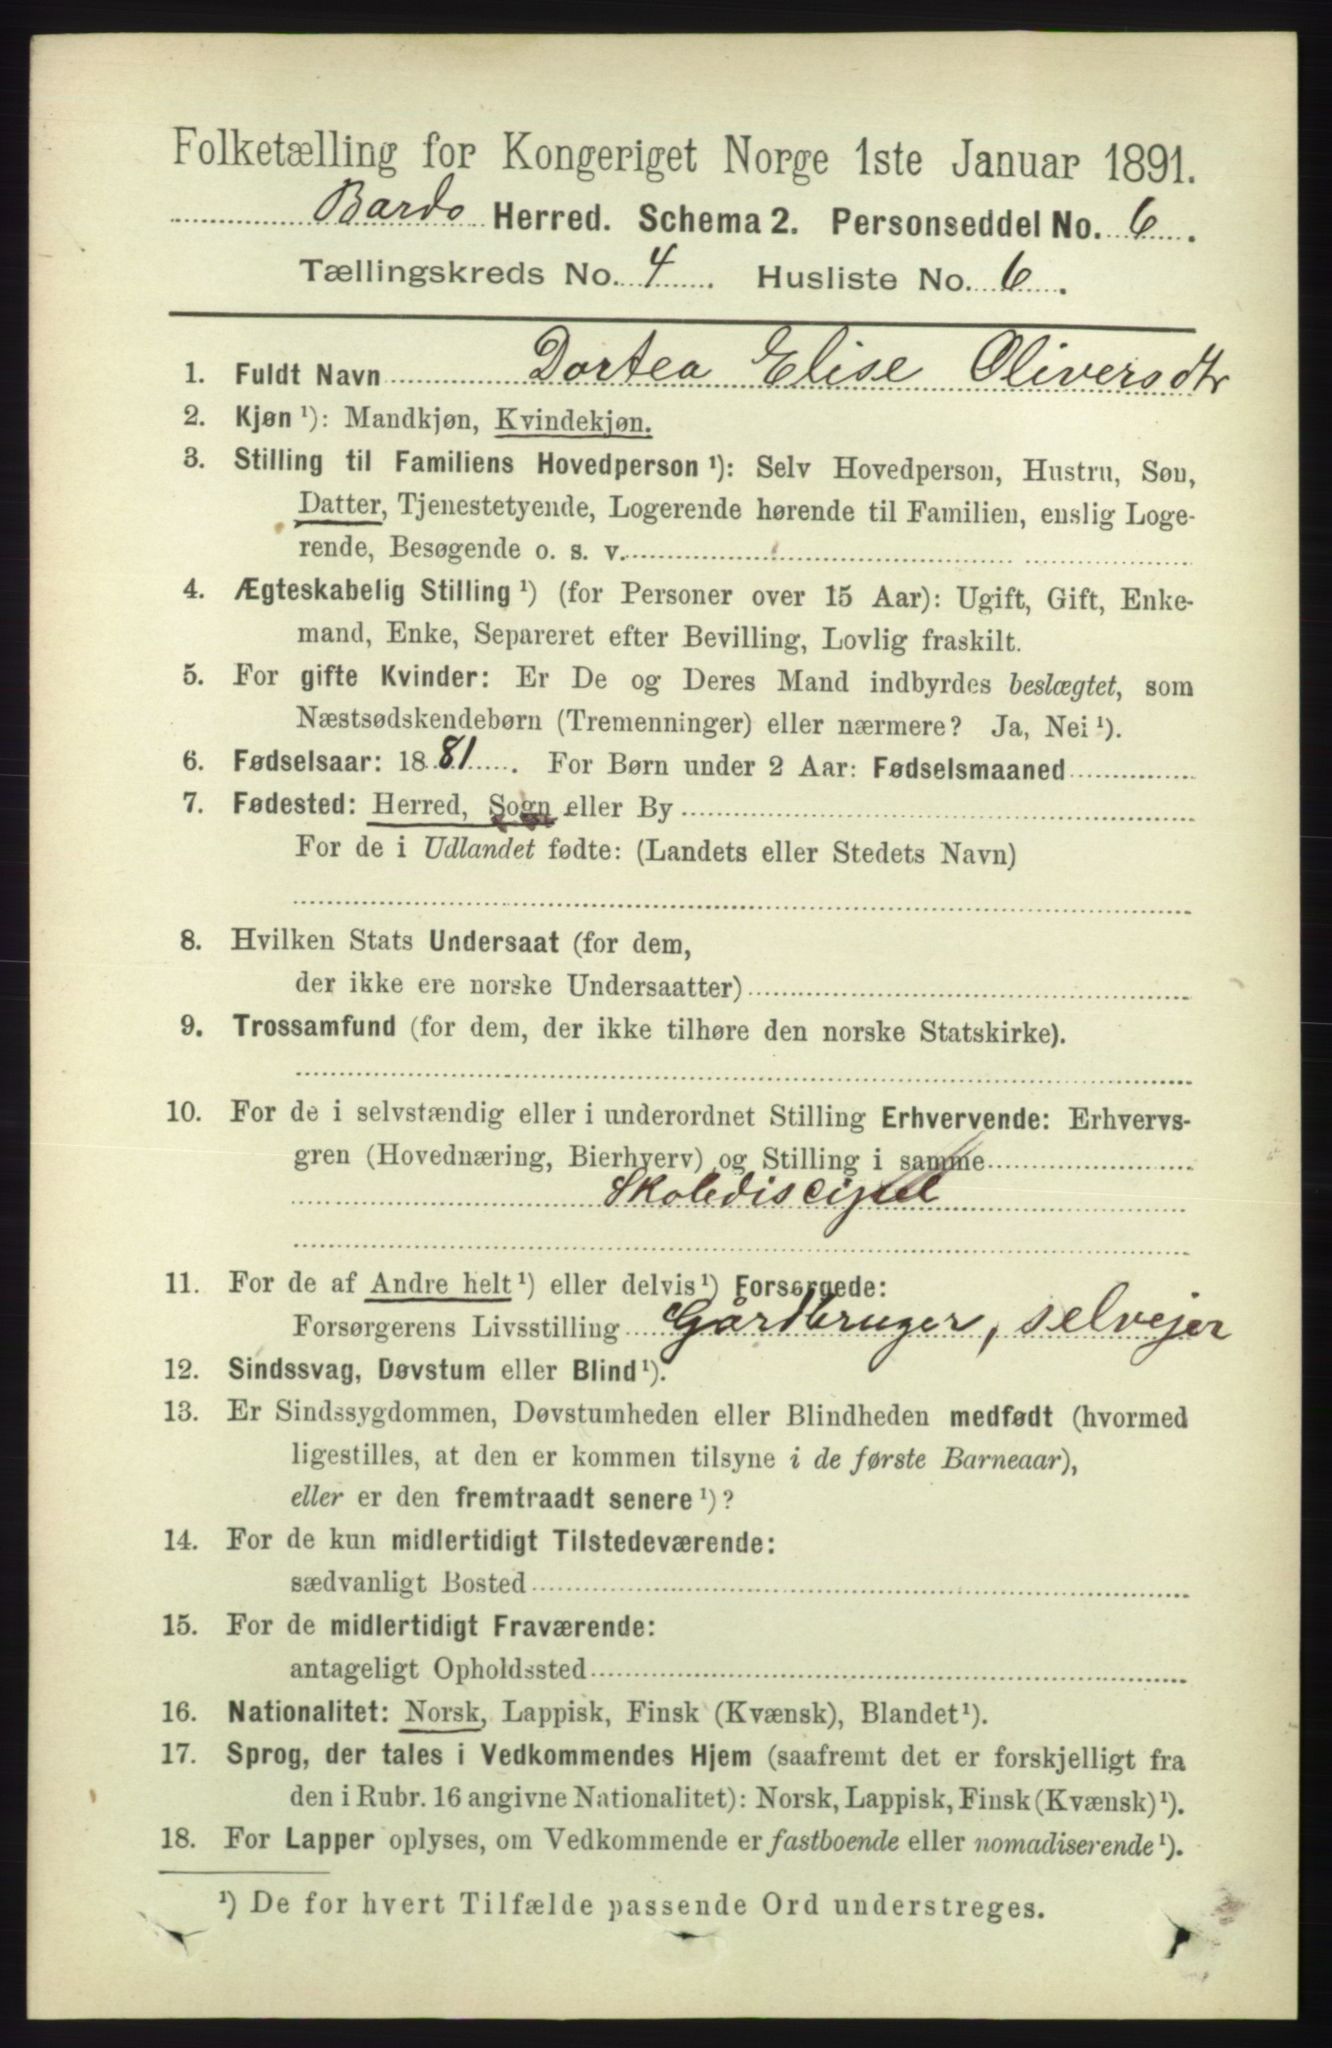 Folketælling for Kongeriget Norge 1ste Januar 1891.
Bardo Herred. Schema 2. Personseddel No. 6.
Tællingskreds No. 4. Husliste No. 6.
1. Fuldt Navn Dortea Elise Oliversdtr
2. Kjøn ¹): Mandkjøn, Kvindekjøn.
3. Stilling til Familiens Hovedperson ¹): Selv Hovedperson, Hustru, Søn,
Datter, Tjenestetyende, Logerende hørende til Familien, enslig Loge-
rende, Besøgende o. s. v.
4. Ægteskabelig Stilling ¹) (for Personer over 15 Aar): Ugift, Gift, Enke-
mand, Enke, Separeret efter Bevilling, Lovlig fraskilt.
5. For gifte Kvinder: Er De og Deres Mand indbyrdes beslægtet, som
Næstsødskendebørn (Tremenninger) eller nærmere? Ja, Nei ¹).
6. Fødselsaar: 1881. For Børn under 2 Aar: Fødselsmaaned
7. Fødested: Herred, Sogn eller By
For de i Udlandet fødte: (Landets eller Stedets Navn)
8. Hvilken Stats Undersaat (for dem,
der ikke ere norske Undersaatter)
9. Trossamfund (for dem, der ikke tilhøre den norske Statskirke).
10. For de i selvstændig eller i underordnet Stilling Erhvervende: Erhvervs-
gren (Hovednæring, Bierhverv) og Stilling i samme
Skolediscipel
11. For de af Andre helt ¹) eller delvis ¹) Forsørgede:
Forsørgerens Livsstilling Gårdbruger, selvejer
12. Sindssvag, Døvstum eller Blind ¹).
13. Er Sindssygdommen, Døvstumheden eller Blindheden medfødt (hvormed
ligestilles, at den er kommen tilsyne i de første Barneaar),
eller er den fremtraadt senere ¹)?
14. For de kun midlertidigt Tilstedeværende:
sædvanligt Bosted
15. For de midlertidigt Fraværende:
antageligt Opholdssted
16. Nationalitet: Norsk, Lappisk, Finsk (Kvænsk), Blandet ¹).
17. Sprog, der tales i Vedkommendes Hjem (saafremt det er forskjelligt fra
den i Rubr. 16 angivne Nationalitet): Norsk, Lappisk, Finsk (Kvænsk) ¹).
18. For Lapper oplyses, om Vedkommende er fastboende eller nomadiserende ¹).
¹) De for hvert Tilfælde passende Ord understreges.